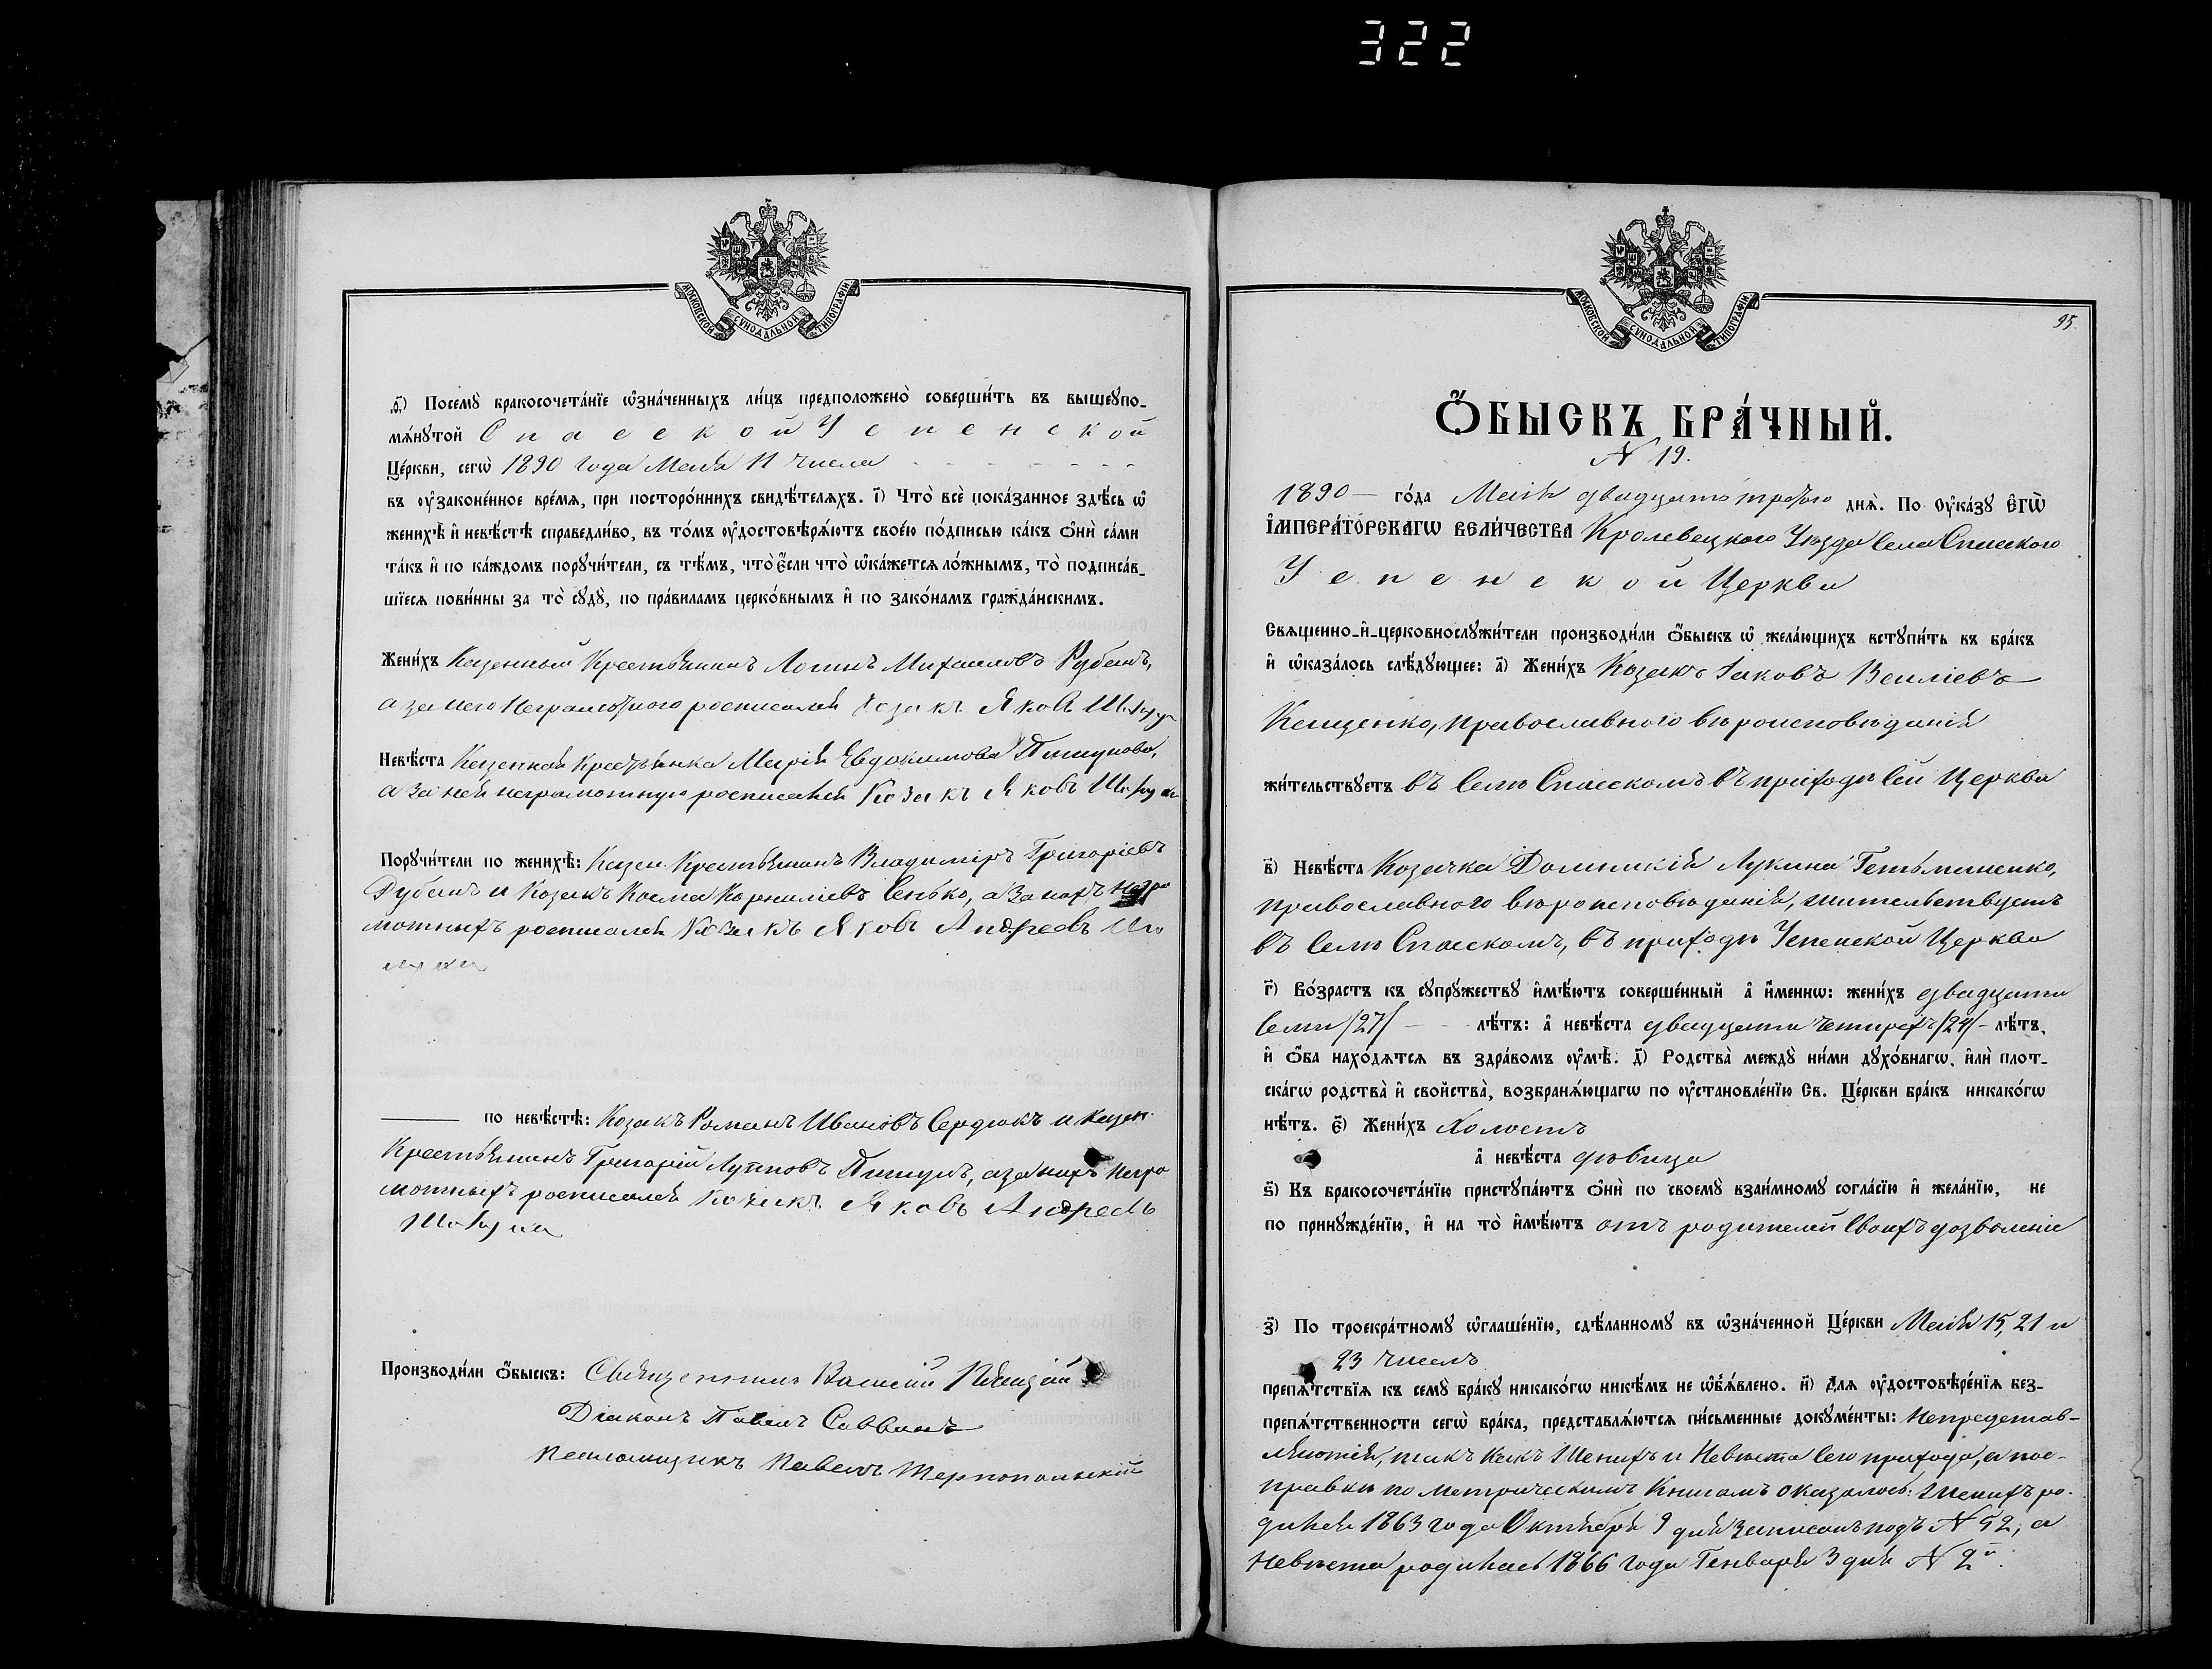 322
МОСКОВСКОЙ СѴНОДАЛЬНОЙ ТИПОГРАФІИ
ѳ҃) Посемꙋ бракосочета́нїе ѡ҆зна́ченныхъ ли́цъ предположено̀ соверши́ть въ вышеꙋпо-
мѧ́нꙋтой Спасской Успенской
Це́ркви, сегѡ̀ 1890 года Маія 11 числа
въ ᲂу҆законе́нное вре́мѧ, при посторо́ннихъ свидѣ́телѧхъ. і҃) Что̀ всѐ пока́занное здѣ́сь ѡ҆
женихѣ̀ и҆ невѣ́стѣ справедли́во, въ то́мъ ᲂу҆достовѣрѧ́ютъ свое́ю по́дписью ка́къ ѻ҆нѝ са́ми
та́къ и҆ по ка́ждомъ порꙋчи́тели, съ тѣ́мъ, что̀ є҆́сли что̀ ѡ҆ка́жетсѧ ло́жнымъ, то̀ подписа́в-
шїесѧ пови́нны за то̀ сꙋдꙋ̀, по пра́виламъ церко́внымъ и҆ по зако́намъ гражда́нскимъ.
Жени́хъ Казенный Крестьянинъ Логинъ Михаиловъ Рубанъ,
а за него неграмотного росписался Козакъ Яковъ
Невѣ́ста Казенная Крестьянка Марія Евдокимова Пишунова,
а за ней неграмотную росписался Козакъ Яковъ
Порꙋчи́тели по женихѣ̀: Казен. Крестьянинъ Владиміръ Григоріевъ
Рубанъ и Козакъ Косма Корниліевъ Сенько, а за нихъ негра
мотныхъ росписался Козакъ Яковъ Андреевъ
по невѣ́стѣ: Козакъ Романъ Ивановъ Сердюкъ и казен.
Крестьянинъ Григорій Пишунъ, а за нихъ негра
мотныхъ росписался Козакъ Яковъ Андреевъ
Производи́ли ѻ҆́быскъ: Священникъ Василій
Діаконъ Павелъ Саввинъ
Псаломщикъ Павелъ Тернопольскій
МОСКОВСКОЙ СѴНОДАЛЬНОЙ ТИПОГРАФІИ
95.
Ѻ҆́БЫСКЪ БРА́ЧНЫЙ.
N 19.
1890 — го́да Маія двадцать третьго днѧ̀. По ᲂу҆ка́зꙋ Є҆ГѠ̀
І҆МПЕРА́ТОРСКАГѠ ВЕЛИ́ЧЕСТВА Кролевецкого Уѣзда Села Спаского
Успенской Церкви
Свѧщенно-и҆-церковнослꙋжи́тели производи́ли ѻ҆́быскъ ѡ҆ жела́ющихъ встꙋпи́ть въ бра́къ
и҆ ѡ҆каза́лось слѣ́дꙋющее: а҃) Жени́хъ Козакъ Іаковъ Василіевъ
Кащенко, православного вѣроисповѣданія
жи́тельствꙋетъ въ Селѣ Спасскомъ въ приходѣ Сей Церкви
в҃) Невѣ́ста Козачка Домникія Лукина Гетьманенко,
православного вѣроисповѣданія, жительствуетъ
въ Селѣ Спасскомъ, въ приходѣ Успенской Церкви
г҃) Во́зрастъ къ сꙋпрꙋ́жествꙋ и҆мѣ́ютъ соверше́нный а҆ и҆́меннѡ: жени́хъ двадцати
Семи /27/ — лѣ́тъ: а҆ невѣ́ста двадцати четырехъ /24/ — лѣ́тъ,
и҆ ѻ҆́ба нахо́дѧтсѧ въ здра́вомъ ᲂу҆мѣ̀. д҃) Родства̀ междꙋ̀ ни́ми дꙋхо́внагѡ, и҆лѝ плот-
ска́гѡ родства̀ и҆ свойства̀, возбранѧ́ющагѡ по ᲂу҆становле́нїю Св. Це́ркви бра́къ никако́гѡ
нѣ́тъ. є҃) Жени́хъ Холостъ
а҆ невѣ́ста дѣвица
ѕ҃) Къ бракосочета́нїю пристꙋпа́ютъ ѻ҆нѝ по своемꙋ̀ взаи́мномꙋ согла́сїю и҆ жела́нїю, не
по принꙋжде́нїю, и҆ на то̀ и҆мѣ́ютъ отъ родителей Своихъ дозволеніе
з҃) По троекра́тномꙋ ѡ҆глаше́нїю, сдѣ́ланномꙋ въ ѡ҆зна́ченной Це́ркви Маія 15, 21 и
23 числъ
препѧ́тствїѧ къ семꙋ̀ бра́кꙋ никако́гѡ никѣ́мъ не ѡ҆б̾ѧ́влено. и҃) Длѧ ᲂу҆достовѣре́нїѧ без-
препѧ́тственности сегѡ̀ бра́ка, представлѧ́ютсѧ пи́сьменные докꙋме́нты: непредстав-
ляются, такъ какъ Женихъ и Невѣста Сего прихода, а пос-
правки по метрическимъ Книгамъ оказалось: Женихъ ро-
дился 1863 года Октября 9 дня записанъ подъ N 52, а
Невѣста родилась 1866 года Генваря 3 дня N 2й.